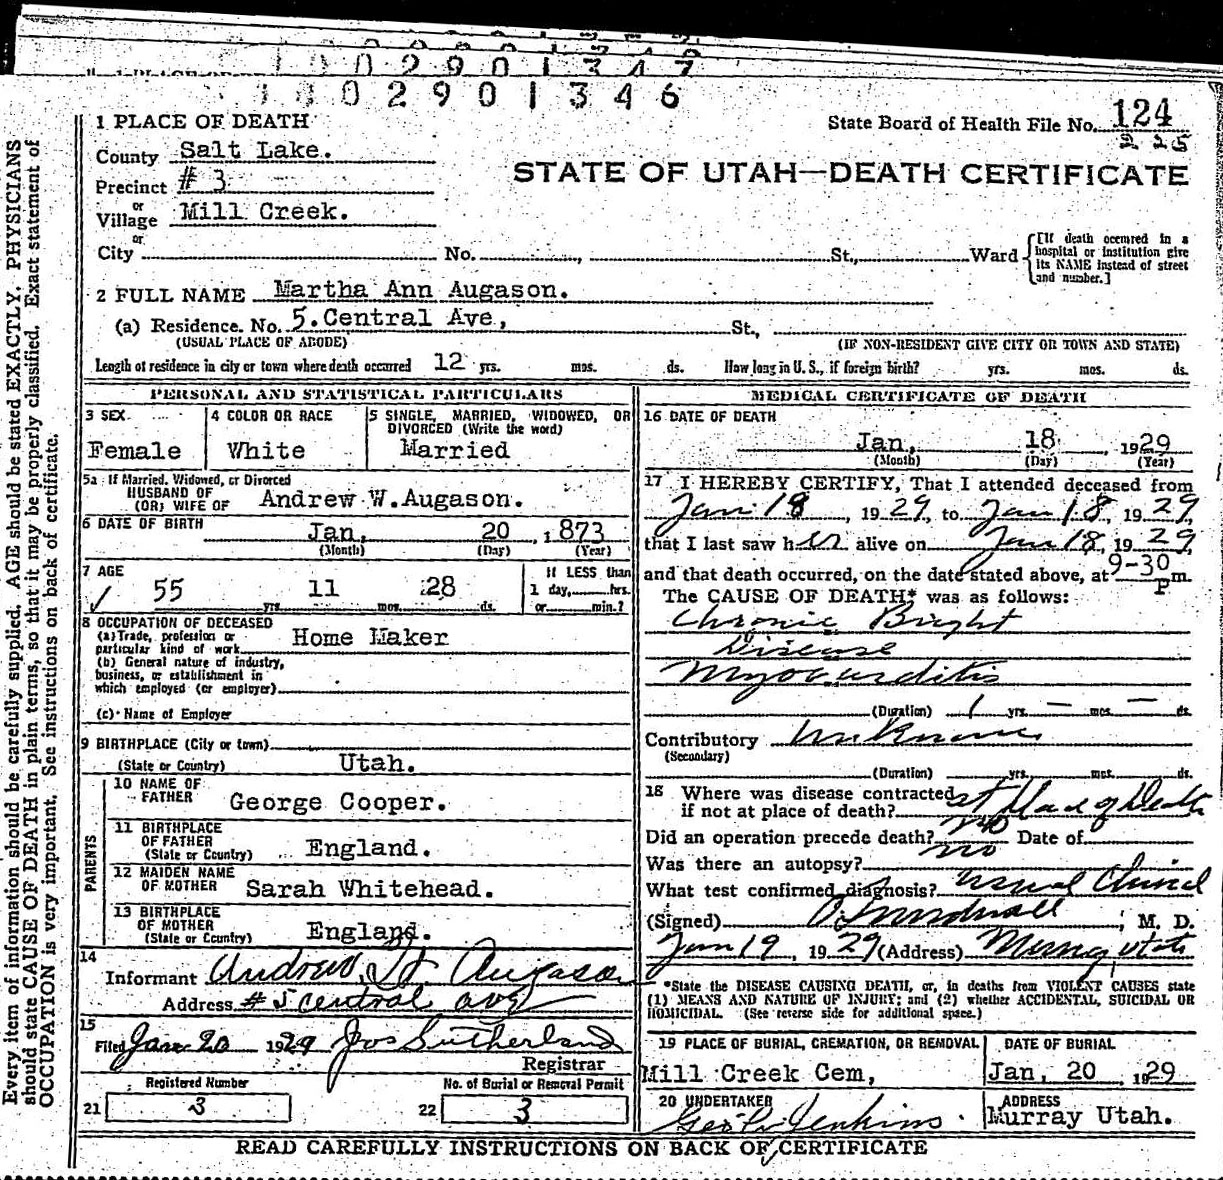 0 2 9 0 1 3 4 7
0 2 9 0 1 3 4 6
1 PLACE OF DEATH
State Board of Health File No. 124
225
County Salt Lake.
STATE OF UTAH—DEATH CERTIFICATE
Precinct # 3
or
Village Mill Creek.
or
City No. , St., Ward
[If death occurred in a
hospital or institution give
its NAME instead of street
and number.]
2 FULL NAME Martha Ann Augason.
(a) Residence. No. 5. Central Ave, St.,
(USUAL PLACE OF ABODE) (IF NON-RESIDENT GIVE CITY OR TOWN AND STATE)
Length of residence in city or town where death occurred 12 yrs. mos. ds. How long in U. S., if foreign birth? yrs. mos. ds.
PERSONAL AND STATISTICAL PARTICULARS
3 SEX 4 COLOR OR RACE 5 SINGLE, MARRIED, WIDOWED, OR
DIVORCED (Write the word)
Female White Married
5a If Married, Widowed, or Divorced
HUSBAND OF
(OR) WIFE OF Andrew W.Augason.
6 DATE OF BIRTH Jan, 20 , 1873
(Month) (Day) (Year)
7 AGE If LESS than
55 yrs. 11 mos. 28 ds. 1 day, hrs.
or min.?
8 OCCUPATION OF DECEASED
(a) Trade, profession or
particular kind of work Home Maker
(b) General nature of industry,
business, or establishment in
which employed (or employer)
(c) Name of Employer
9 BIRTHPLACE (City or town)
(State or Country) Utah.
PARENTS
10 NAME OF
FATHER George Cooper.
11 BIRTHPLACE
OF FATHER
(State or Country) England.
12 MAIDEN NAME
OF MOTHER Sarah Whitehead.
13 BIRTHPLACE
OF MOTHER
(State or Country) England.
14
Informant Andrew W Augason
Address # 5 central ave
15
Filed Jan 20 1929 Jos Sutherland
Registrar
Registered Number No. of Burial or Removal Permit
21 3 22 3
MEDICAL CERTIFICATE OF DEATH
16 DATE OF DEATH
Jan, 18 , 1929
(Month) (Day) (Year)
17 I HEREBY CERTIFY, That I attended deceased from
Jan 18 , 1929, to Jan 18, 1929,
that I last saw her alive on Jan 18, 1929,
and that death occurred, on the date stated above, at 9-30 P m.
The CAUSE OF DEATH* was as follows:
Chronic Bright
Disease
Myocarditis
(Duration) 1 yrs. — mos. — ds.
Contributory Unknown
(Secondary)
(Duration) yrs. mos. ds.
18 Where was disease contracted
if not at place of death? at Place of Death
Did an operation precede death? no Date of
Was there an autopsy? no
What test confirmed diagnosis? usual Clinical
(Signed) , M. D.
Jan 19 , 1929 (Address) Murray Utah
*State the DISEASE CAUSING DEATH, or, in deaths from VIOLENT CAUSES state
(1) MEANS AND NATURE OF INJURY; and (2) whether ACCIDENTAL, SUICIDAL OR
HOMICIDAL. (See reverse side for additional space.)
19 PLACE OF BURIAL, CREMATION, OR REMOVAL DATE OF BURIAL
Mill Creek Cem, Jan, 20 1929
20 UNDERTAKER ADDRESS
Jenkins Murray Utah.
READ CAREFULLY INSTRUCTIONS ON BACK OF CERTIFICATE
Every item of information should be carefully supplied. AGE should be stated EXACTLY. PHYSICIANS
should state CAUSE OF DEATH in plain terms, so that it may be properly classified. Exact statement of
OCCUPATION is very important. See instructions on back of certificate.